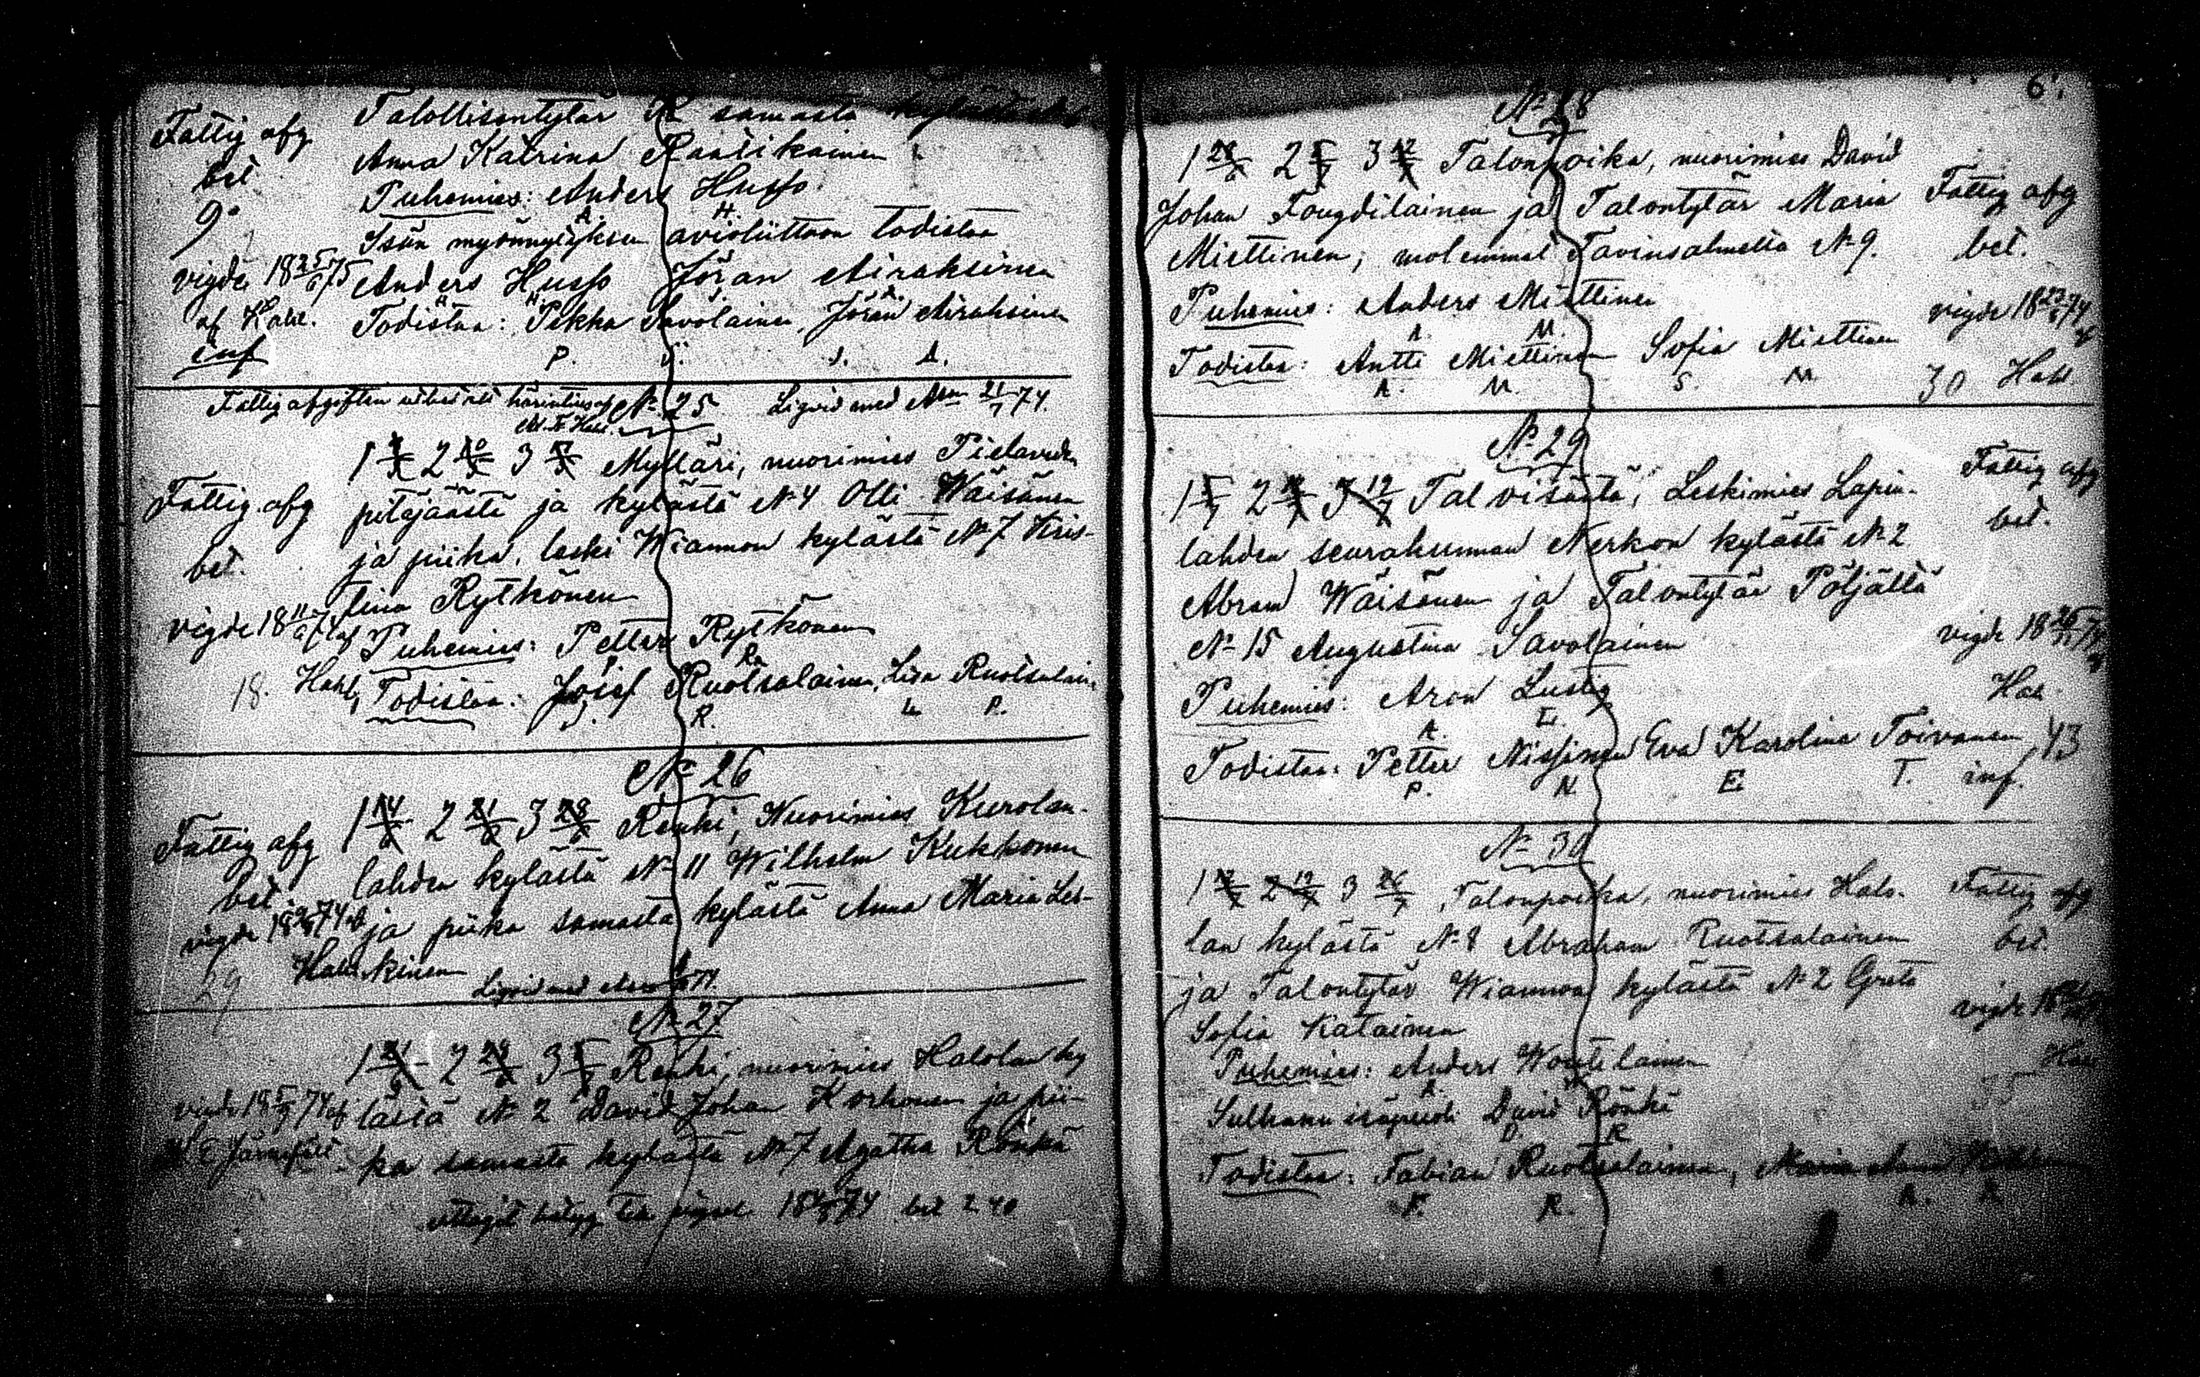 Fattig afg
bet
9
vigde 18 25/6 75
af Hahl.
inf
Talollisentytär R samasta kylästä
Anna Katrina Räätikainen
Puhemies: Anders Husso
A. H.
Isän myönnytyksen avioliittoon todistaa
Anders Husso Jöran Airaksinen
Todistaa: Pekka Savolainen, Jöran Airaksinen
P. S. J. A.
Fattig afgiften
No 25
Liqvid med 21/7 74.
Fattig afg
bet.
vigde 18 11/6 74 af
Hahl,
18.
1 2 3 Mylläri, nuorimies Pielaveden
pitäjäästä ja kylästä No 4 Olli Wäisänen
ja piika, leski Wiannon kylästä No 7 Kris-
tina Rytkönen
Puhemies: Petter Rytkönen
Todistaa: Josef Ruotsalainen, Lisa Ruotsalain
J. R. L R.
No 26
Fattig afg
bet.
vigde 18 74 af
Hahl
29
1 14/6 2 21/6 3 28/6 Renki, Nuorimies Kurolan-
lahden kylästä No 11 Wilhelm Kukkonen
ja piika samasta kylästä Anna Maria Les-
kinen
Liqvid med 74.
No 27
vigde 18 5/7 74 af
Järnefelt
1 21/6 2 28/6 3 Renki, nuorimies Halolan ky
lästä No 2 David Johan Korhonen ja pii-
ka samasta kylästä No 7 Agatha Rönkä
74 bet 2 40
6.
No 28
1 28/6 2 5/7 3 12/7 Talonpoika, nuorimies David
Johan Fougdilainen ja Talontytär Maria
Miettinen; molemmat Tavinsalmelta No 9.
Puhemies: Anders Miettinen
A. M.
Todistaa: Antti Miettinen Sofia Miettinen
A. M. S. M.
Fattig afg
bet.
vigde 18 74 af
30 Hahl
No 29
1 5/7 2 12/7 3 19/7 Talvisästä, Leskimies Lapin-
lahden seurakunnan Nerkon kylästä No 2
Abram Wäisänen ja Talontytär Pöljältä
No 15 Augustina Savolainen
Puhemies: Aron Lustig
A. L.
Todistaa: Petter Nissinen Eva Karolina Toivanen
P. N. E. T.
Fattig afg
bet.
vigde 18 74 af
Hah
43
inf.
No 30
1 12/7 2 19/7 3 26/7 Talonpoika, nuorimies Halo-
lan kylästä No 8 Abraham Ruotsalainen
ja Talontytär Wiannon kylästä No 2 Greta
Sofia Katainen
Puhemies: Anders Woutilainen
A.
Sulhanen isäpuoli David Rönkä
D. R
Todistaa: Fabian Ruotsalainen, Maria Anna
F. R.
Fattig afg
bet.
vigde 18
Hah